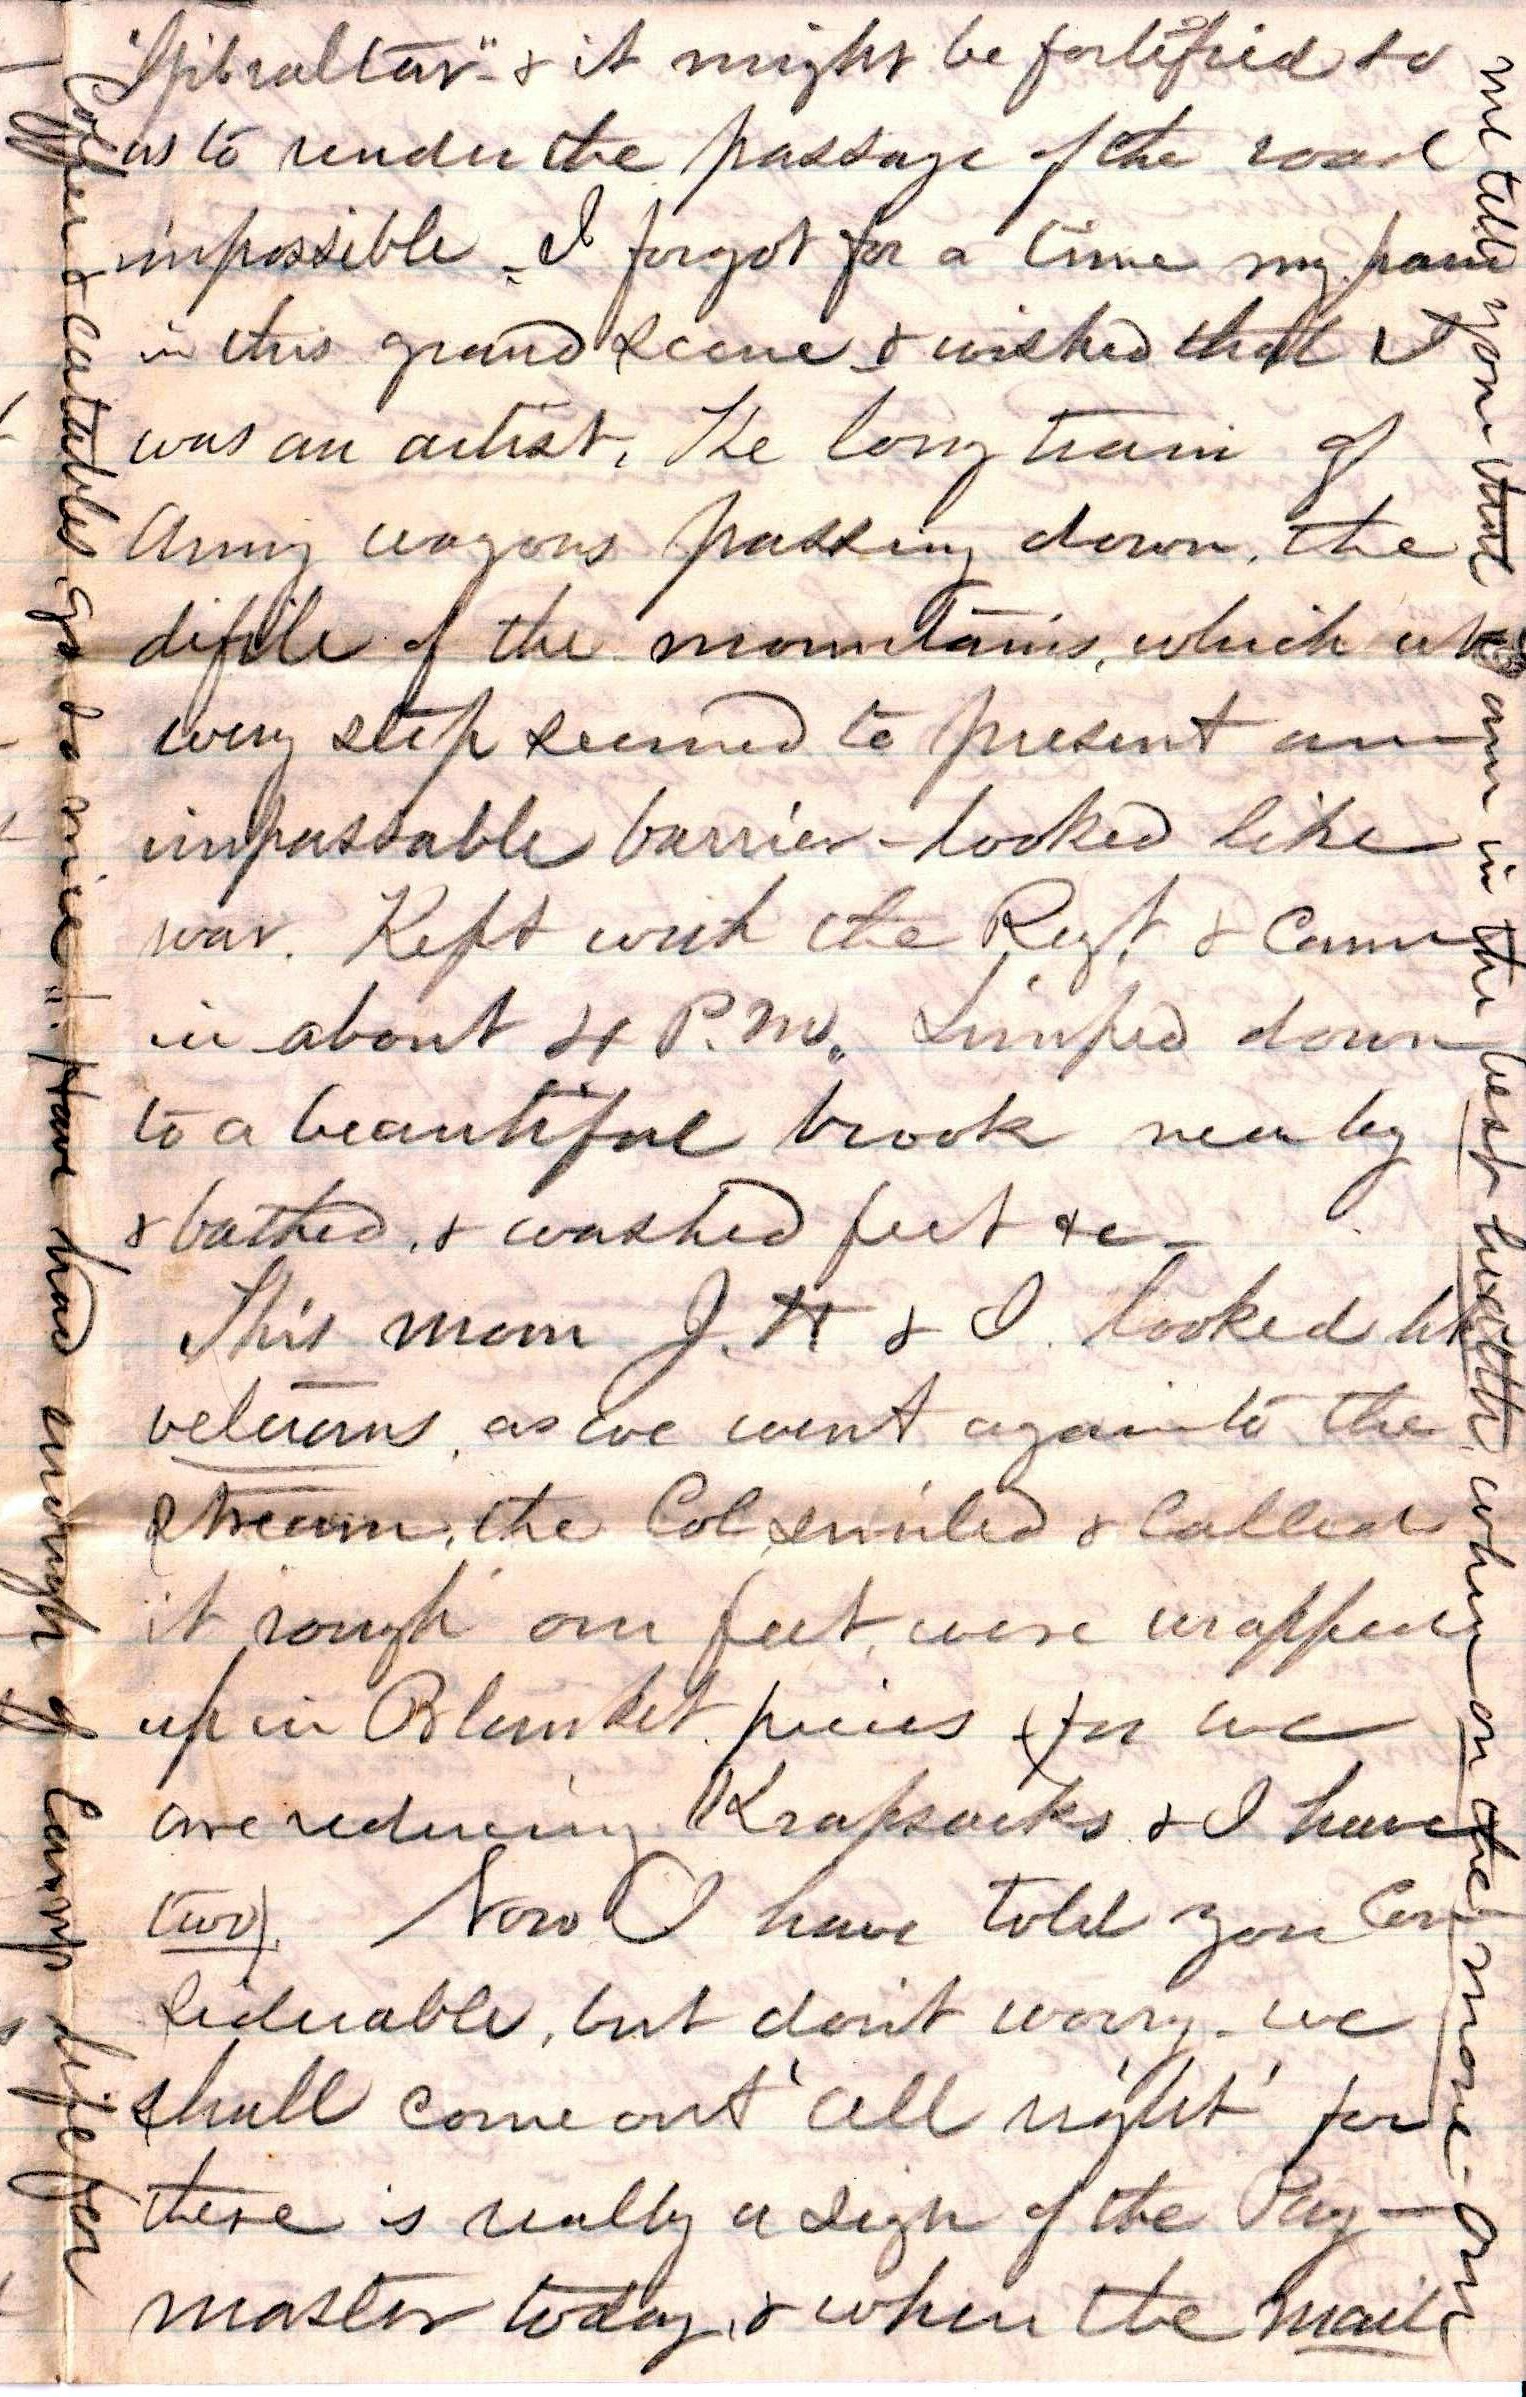 "Gibraltar" & it might be fortified so
as to render the passage of the road
impossible - I forgot for a time my pain
in this grand scene & wished that I
was an artist. The long train of
Army wagons passing down, the
difile of the mountains, which at
every step seemed to present an
impassable barrier - looked like
war. Kept with the Regt. & Came
in about 4 P.M. Limped down
to a beautiful brook near by
& bathed, & washed feet &c -
This morn J. H & I looked like
veterans, as we went again to the
stream, the Col smiled & called
it rough our feet, were wrapped
up in Blanket pieces (for we
are reducing Knapsacks & I have
two). Now I have told you Con
siderable, but don't worry - we
shall come out 'all right' for
there is really a sign of the Pay-
master today, & when the mail
me tell you that I am in the best health, when on the move - our
Coffee & eatables go so nice". Have had enough of Camp life for